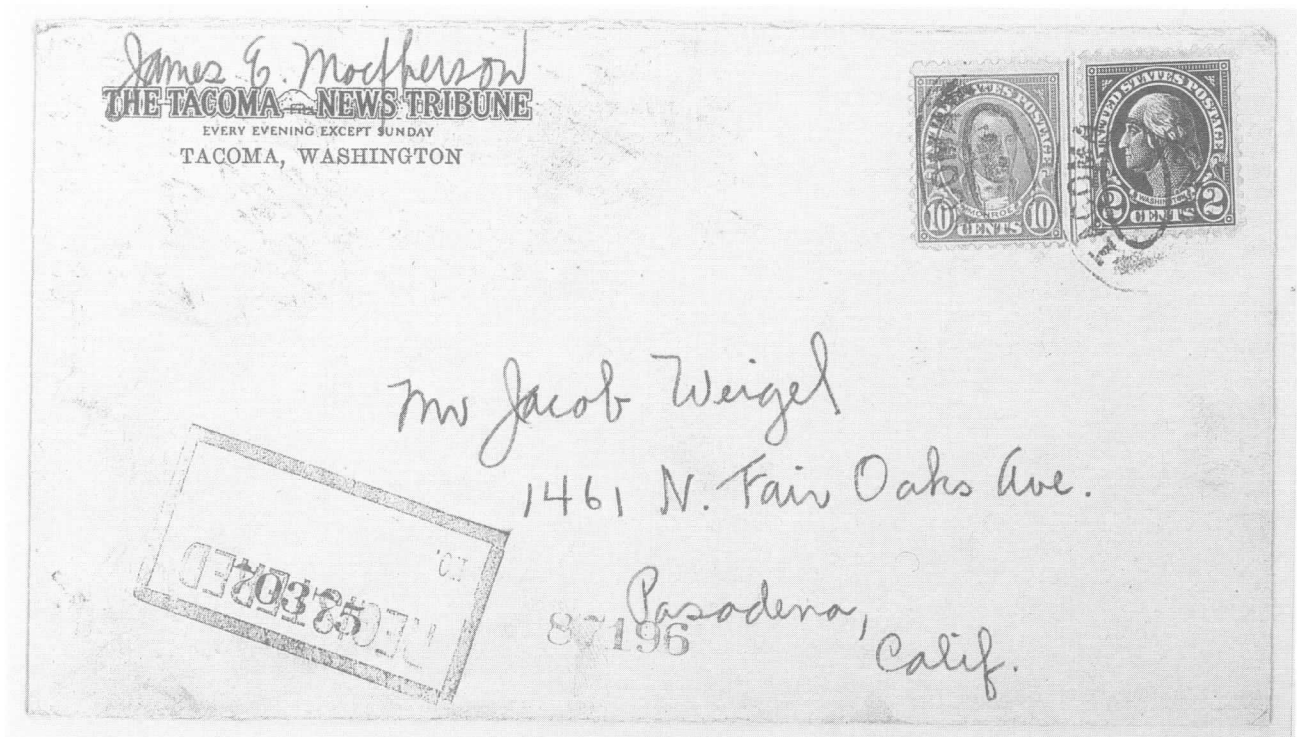 James E. Macpherson
THE TACOMA NEWS TRIBUNE
EVERY EVENING EXCEPT SUNDAY
TACOMA, WASHINGTON
UNITED STATES POSTAGE
MONROE
10 CENTS 10
UNITED STATES POSTAGE
WASHINGTON
2 CENTS 2
TACOMA
Mr Jacob Weigel
1461 N. Fair Oaks Ave.
Pasadena,
Calif.
NO.
87196